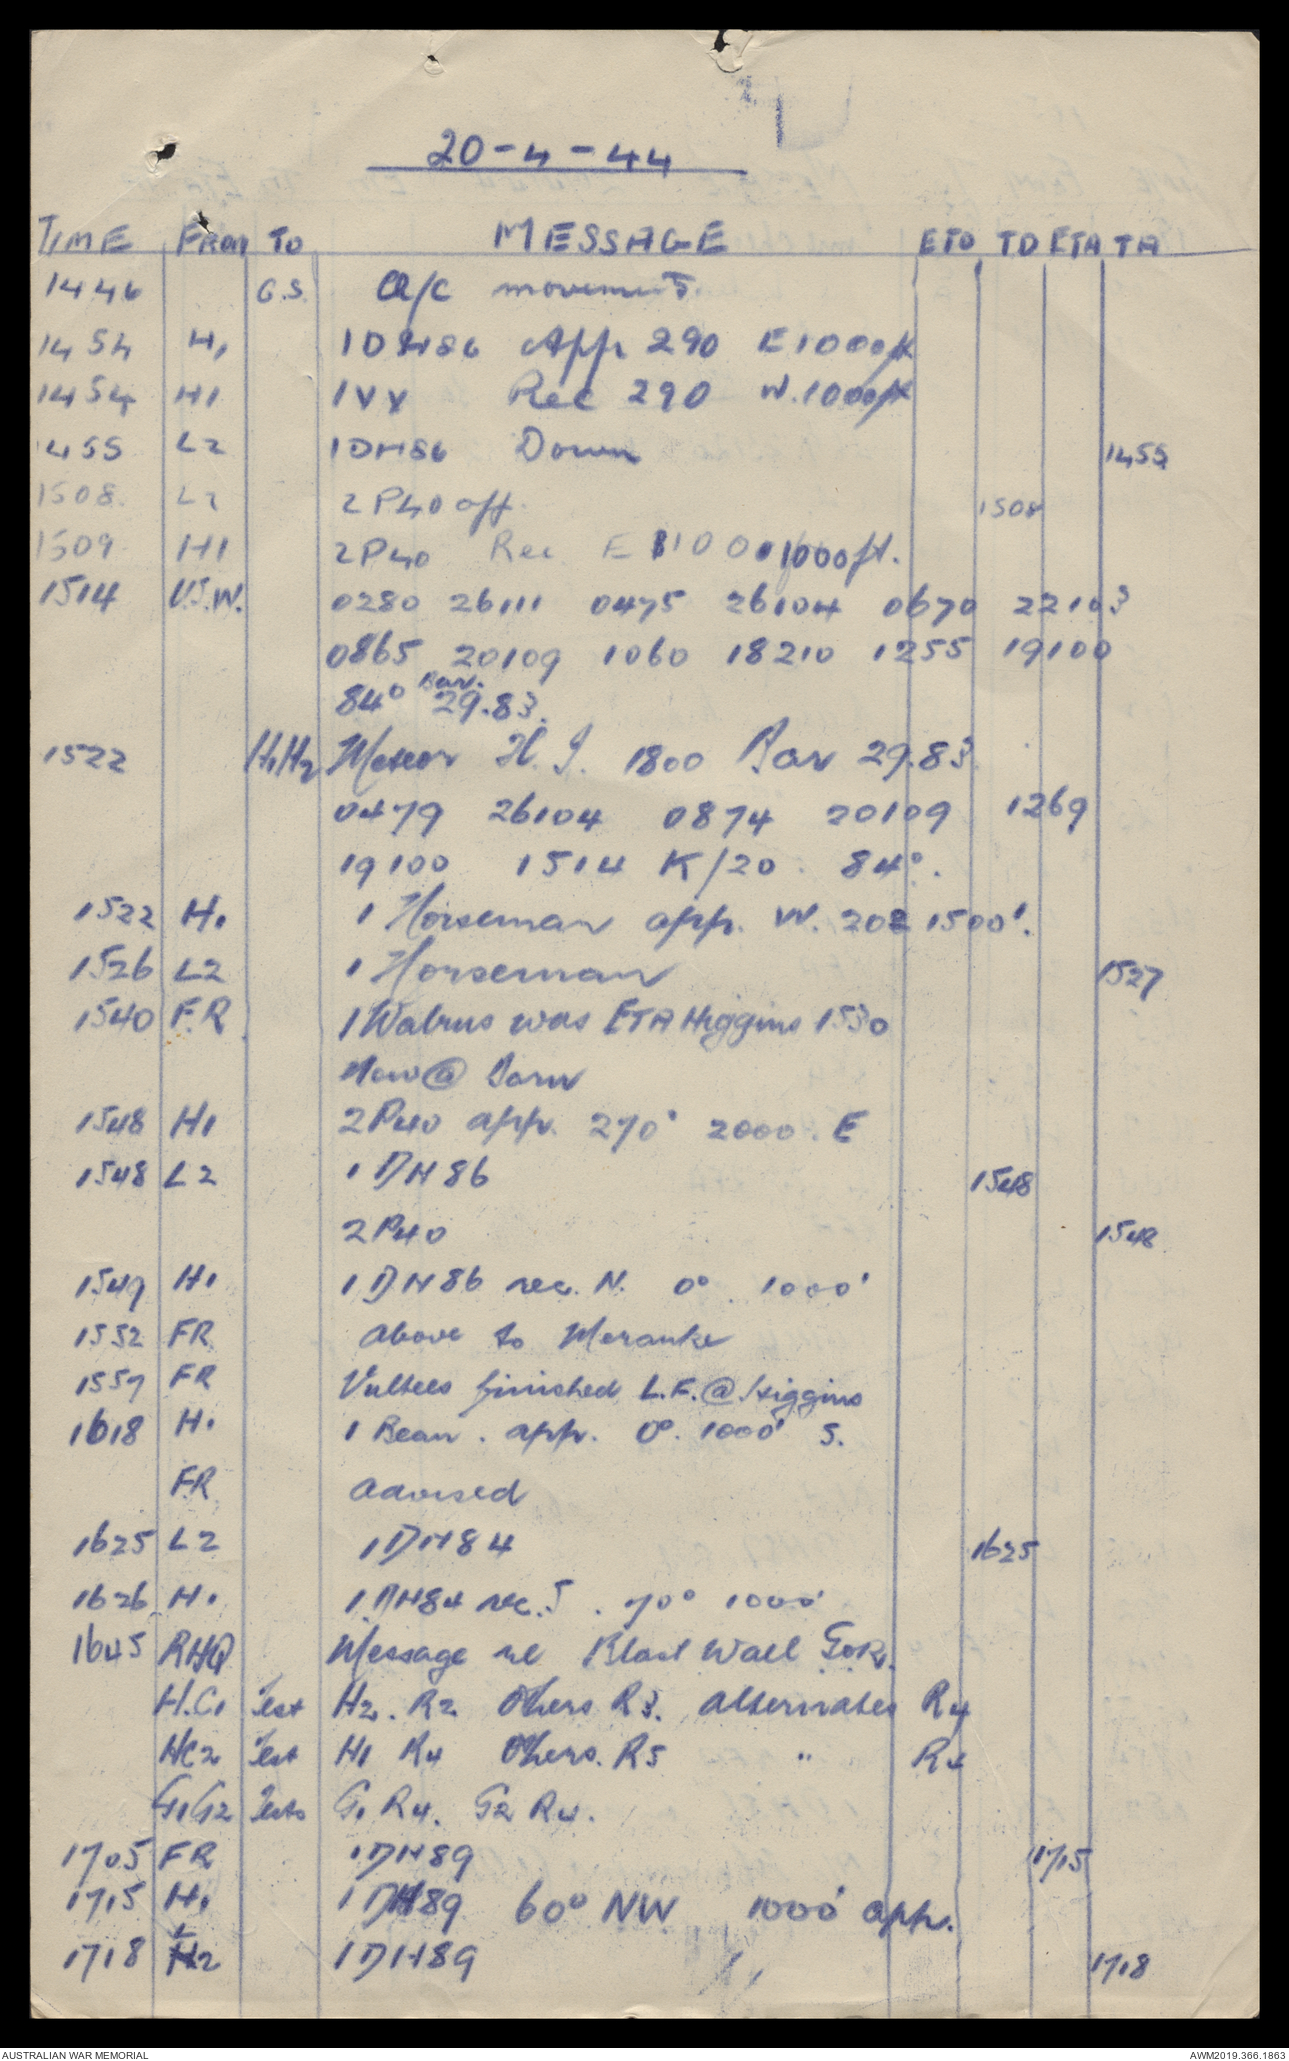 20-4-44
TIME FROM TO MESSAGE ETD TD ETA TA
1446 G.S. A/C movements.
1454 H1 1 DH86 App 290 E 1000ft
1454 H1 1 VV Rec 290 W. 1000ft
1455 L2 1 DH86 Down 1455
1508. L2 2 P40 off. 1508
1509 H1 2 P40 Rec E 1000ft.
1514 V.J.W. 0280 26111 0475 26104 0670 22103
0865 20109 1060 18210 1255 19100
84° Bar. 29.83.
1522 H1H2 Meteor H.I. 1800 Bar 29.83
0479 26104 0874 20109 1269
19100 1514 K/20. 84°.
1522 H1 1 Horseman app. W. 202 1500'.
1526 L2 1 Horseman 1527
1540 F.R. 1 Walrus was ETA Higgins 1530
Now @
1548 H1 2P40 app. 270° 2000. E
1548 L2 1 DH86 1548
2P40 1548
1549 H1 1 DH86 rec. N. 0° 1000'
1552 FR above to Merauke
1557 FR Vultees finished L.F. @ Higgins
1618 H1 1 Beau. app. 0°. 1000' S.
F.R. advised
1625 L2 1 DH84 1625
1626 H1 1 DH84 rec. S. 70° 1000'
1645 RHQ Message re Blast Wall GOR.
H.C1 Test H2. R2 Others R3. alternates R4
HC2 Test H1 R4 Others. R5 " R4
G1G2 Tests G1 R4. G2 R4.
1705 FR 1 DH89 1715
1715 H1 1 DH89 60° NW 1000' app.
1718 L2 1 DH89 1718
AUSTRALIAN WAR MEMORIAL AWM2019.366.1863